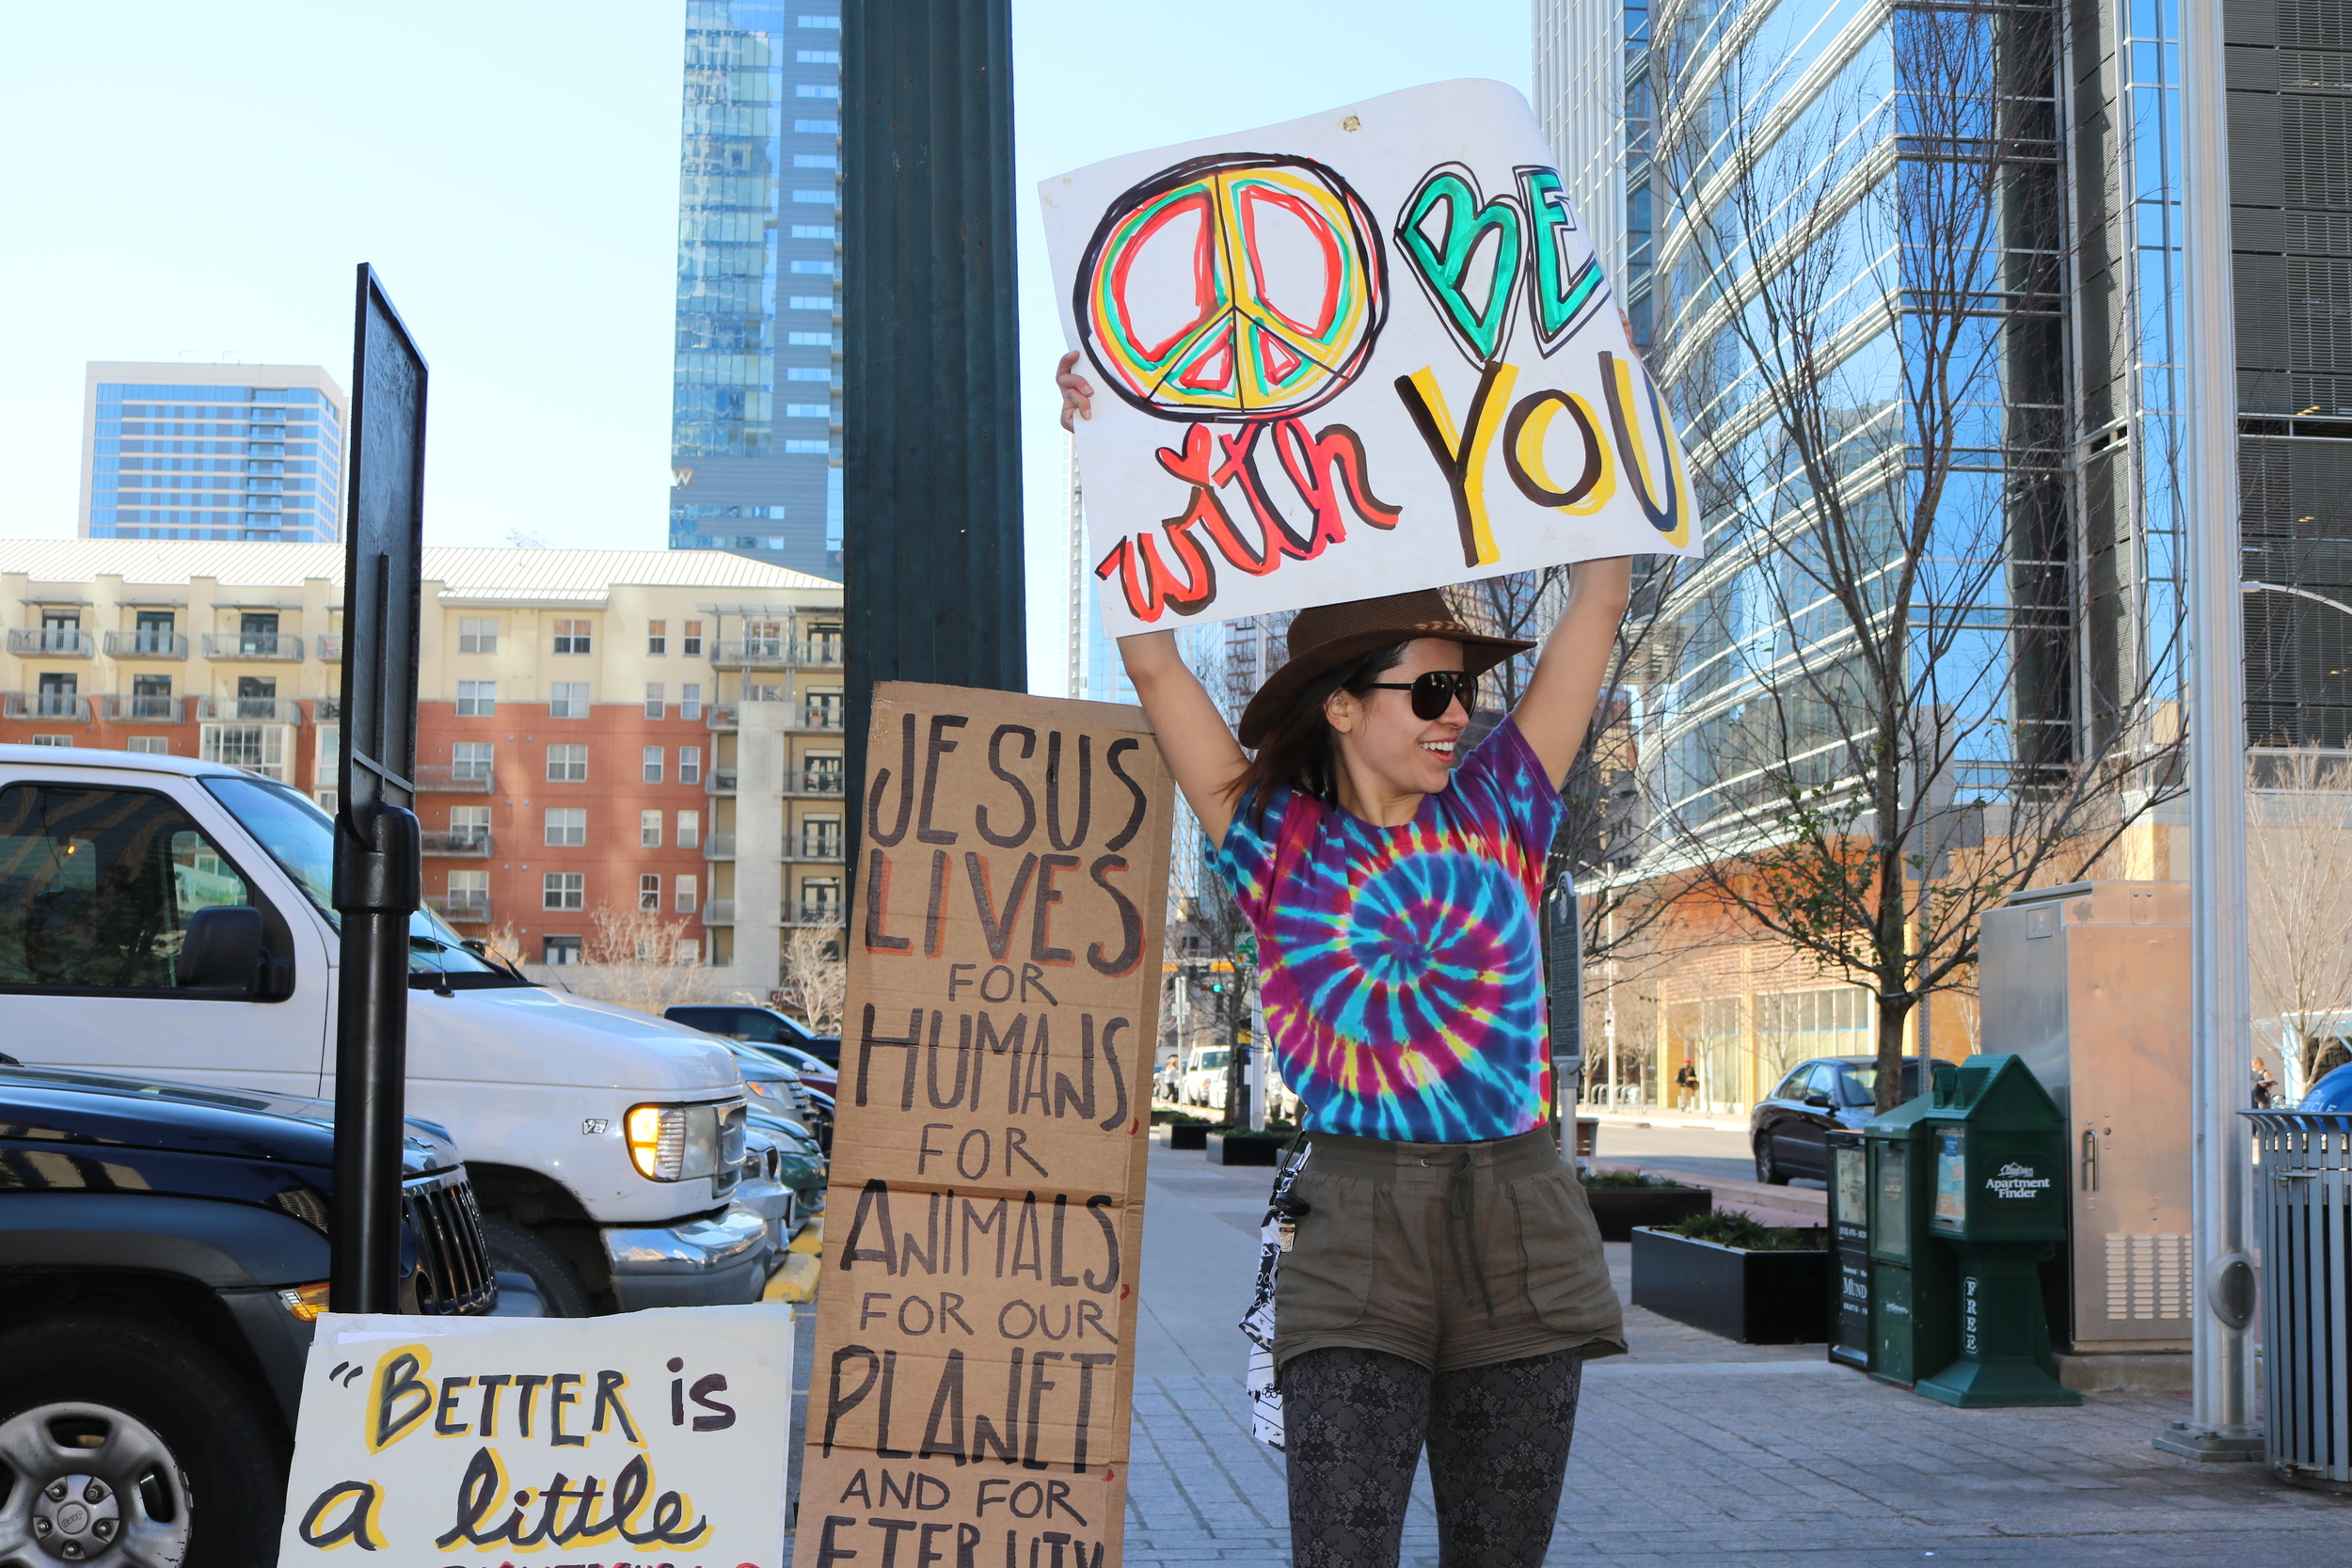 BE
with YOU
JESUS
LIVES
FOR
HUMANS,
FOR
ANIMALS,
FOR OUR
PLANET,
AND FOR
ETERNITY
"BETTER is
a little
W
V8
Jeep
Apartment
Finder
FREE